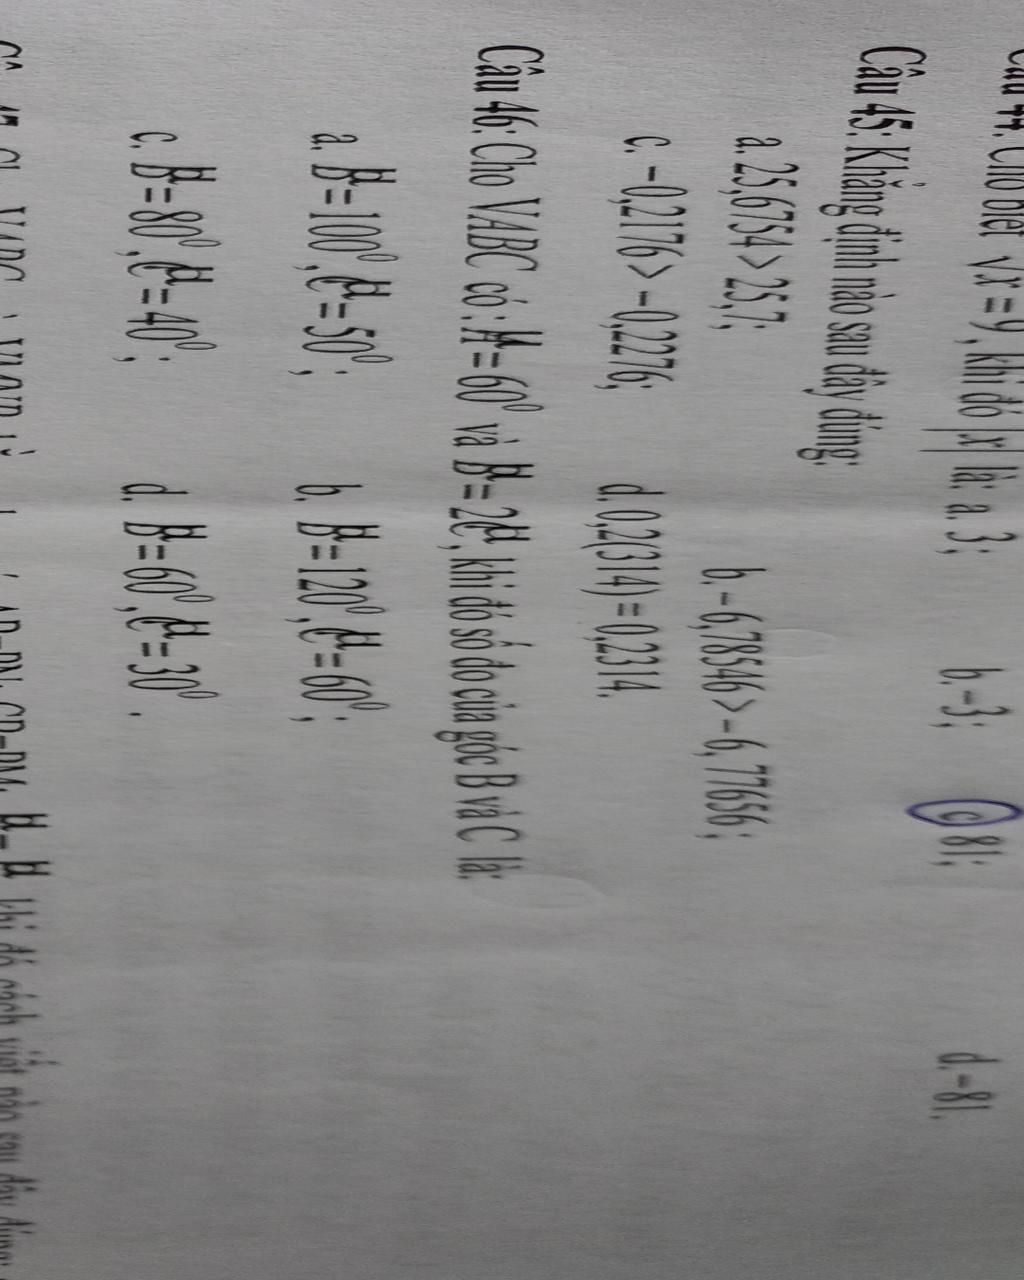 Câu 44: Cho biết √x = 9, khi đó |x| là: a. 3; b. –3; c. 81; d. –81.
Câu 45: Khẳng định nào sau đây đúng:
a. 25,6754 > 25,7; b. – 6,78546 > – 6,77656;
c. – 0,2176 > – 0,2276; d. 0,2(314) = 0,2314.
Câu 46: Cho VABC có: A = 60⁰ và B = 2C, khi đó số đo của góc B và C là:
a. B = 100⁰, C = 50⁰; b. B = 120⁰, C = 60⁰;
c. B = 80⁰, C = 40⁰; d. B = 60⁰, C = 30⁰.
khi đó cách viết nào sau đây đúng: